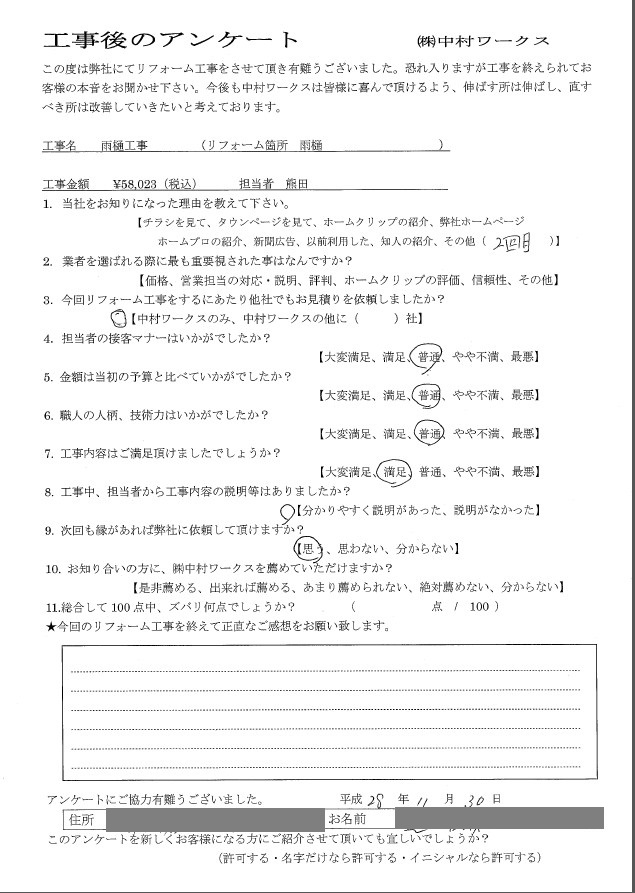 工事後のアンケート　㈱中村ワークス
この度は弊社にてリフォーム工事をさせて頂き有難うございました。恐れ入りますが工事を終えられてお
客様の本音をお聞かせ下さい。今後も中村ワークスは皆様に喜んで頂けるよう、伸ばす所は伸ばし、直す
べき所は改善していきたいと考えております。
工事名　雨樋工事　（リフォーム箇所　雨樋　）
工事金額　¥58,023（税込）　担当者　熊田
1. 当社をお知りになった理由を教えて下さい。
【チラシを見て、タウンページを見て、ホームクリップの紹介、弊社ホームページ
ホームプロの紹介、新聞広告、以前利用した、知人の紹介、その他（ 2回目 ）】
2. 業者を選ばれる際に最も重要視された事はなんですか？
【価格、営業担当の対応・説明、評判、ホームクリップの評価、信頼性、その他】
3. 今回リフォーム工事をするにあたり他社でもお見積りを依頼しましたか？
【中村ワークスのみ、中村ワークスの他に（　）社】
4. 担当者の接客マナーはいかがでしたか？
【大変満足、満足、普通、やや不満、最悪】
5. 金額は当初の予算と比べていかがでしたか？
【大変満足、満足、普通、やや不満、最悪】
6. 職人の人柄、技術力はいかがでしたか？
【大変満足、満足、普通、やや不満、最悪】
7. 工事内容はご満足頂けましたでしょうか？
【大変満足、満足、普通、やや不満、最悪】
8. 工事中、担当者から工事内容の説明等はありましたか？
【分かりやすく説明があった、説明がなかった】
9. 次回も縁があれば弊社に依頼して頂けますか？
【思う、思わない、分からない】
10. お知り合いの方に、㈱中村ワークスを薦めていただけますか？
【是非薦める、出来れば薦める、あまり薦められない、絶対薦めない、分からない】
11.総合して100点中、ズバリ何点でしょうか？　（　点 / 100 ）
★今回のリフォーム工事を終えて正直なご感想をお願い致します。
アンケートにご協力有難うございました。　平成 28 年 11 月 30 日
住所　お名前
このアンケートを新しくお客様になる方にご紹介させて頂いても宜しいでしょうか？
（許可する・名字だけなら許可する・イニシャルなら許可する）